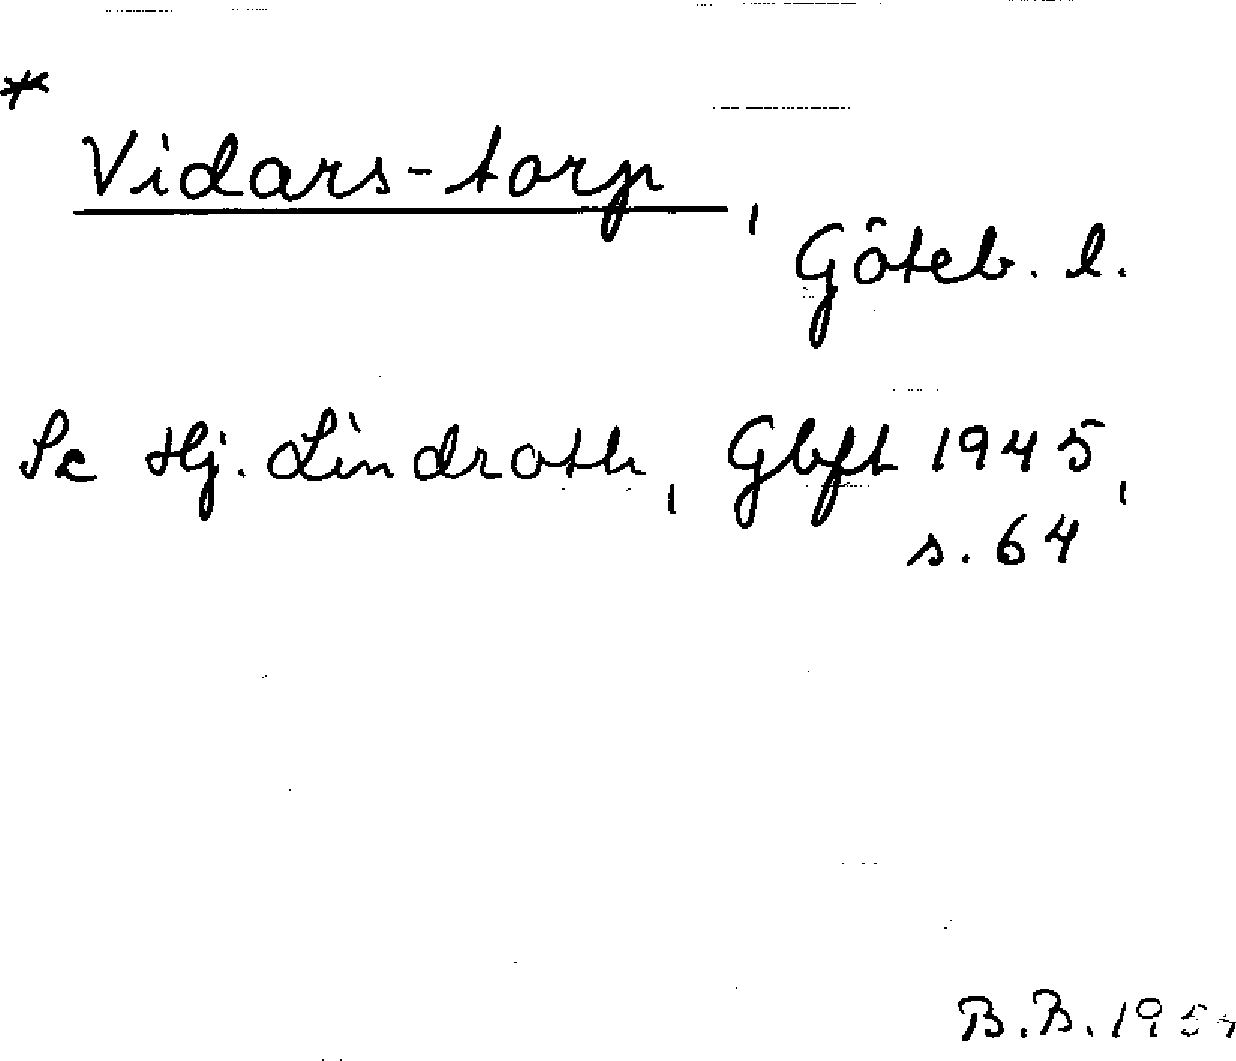 *
Vidars-torp,
Göteb. l.
Se Hj. Lindroth, Gbft 1945,
s. 64
B.B. 195